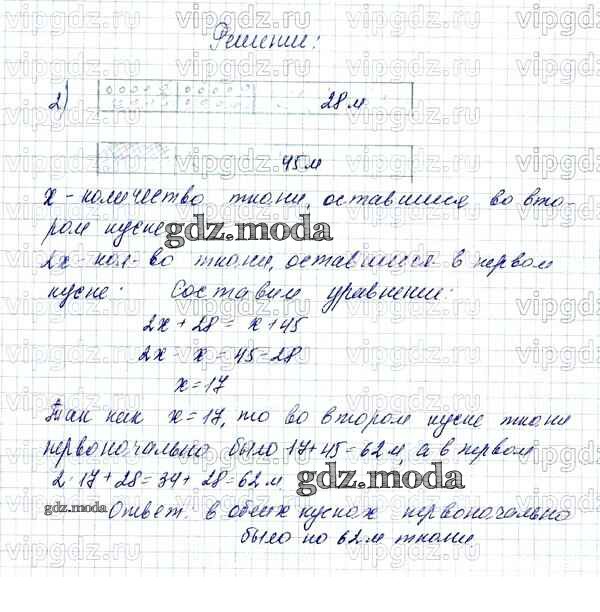 Решение:
2) 28 м
45 м
x - количество ткани, оставшиеся во вто-
ром куске
gdz.moda
2x - кол-во ткани, оставшиеся в первом
куске. Составим уравнение:
2x + 28 = x + 45
2x - x = 45 - 28
x = 17
Так как x = 17, то во втором куске ткани
первоначально было 17 + 45 = 62 м, а в первом
2 · 17 + 28 = 34 + 28 = 62 м
gdz.moda
gdz.moda Ответ: в обеих кусках первоначально
было по 62 м ткани
vipgdz.ru vipgdz.ru vipgdz.ru